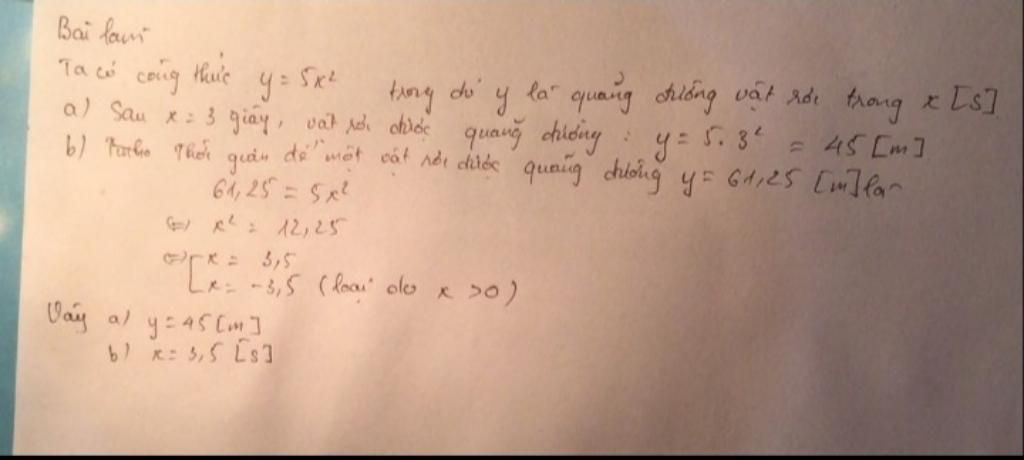 Bài làm
Ta có công thức y = 5x² trong đó y là quãng đường vật rơi trong x [s]
a) Sau x = 3 giây, vật rơi được quãng đường : y = 5. 3² = 45 [m]
b) Thời gian để một vật rơi được quãng đường y = 61,25 [m] là
61,25 = 5x²
⇔ x² = 12,25
⇔ [ x = 3,5
x = -3,5 (loại do x >0)
Vậy a) y = 45 [m]
b) x = 3,5 [s]